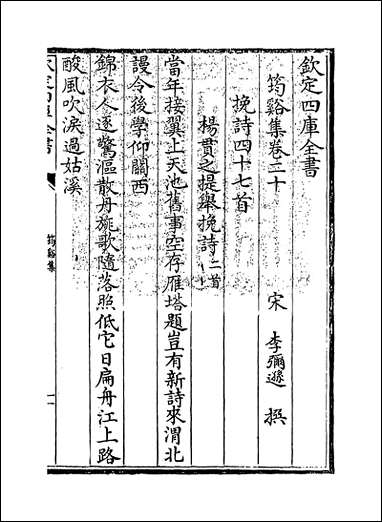 欽定四庫全書
筠谿集卷二十
宋 李彌遜 撰
挽詩四十七首
楊貫之提舉挽詩二首
當年接翼上天池舊事空存雁塔題豈有新詩來渭北
謾令後學仰關西
錦衣人逐驚漚散丹旐歌隨落照低它日扁舟江上路
酸風吹淚過姑溪
欽定四庫全書
筠谿集
一